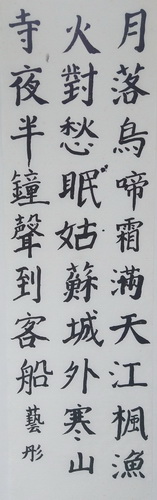 月落烏啼霜滿天江楓漁
火對愁眠姑蘇城外寒山
寺夜半鐘聲到客船
藝彤